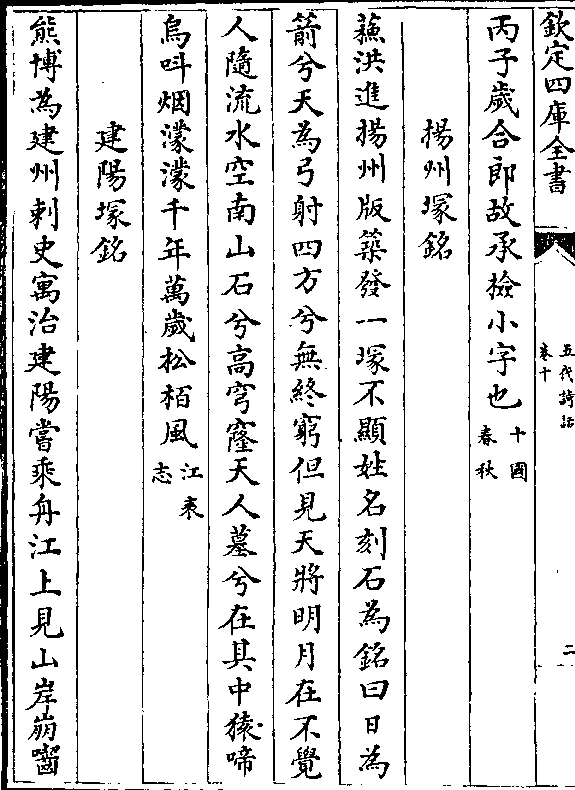 欽定四庫全書
五代詩話
卷十
二
丙子歲合郎故承檢小字也十國春秋
揚州塚銘
蘓洪進揚州版築發一塚不顯姓名刻石為銘曰日為
箭兮天為弓射四方兮無終窮但見天將明月在不覺
人隨流水空南山石兮高穹窿天人墓兮在其中猿啼
烏呌烟濛濛千年萬歲松栢風江表志
建陽塚銘
熊博為建州刺史寓治建陽嘗乘舟江上見山岸崩囓